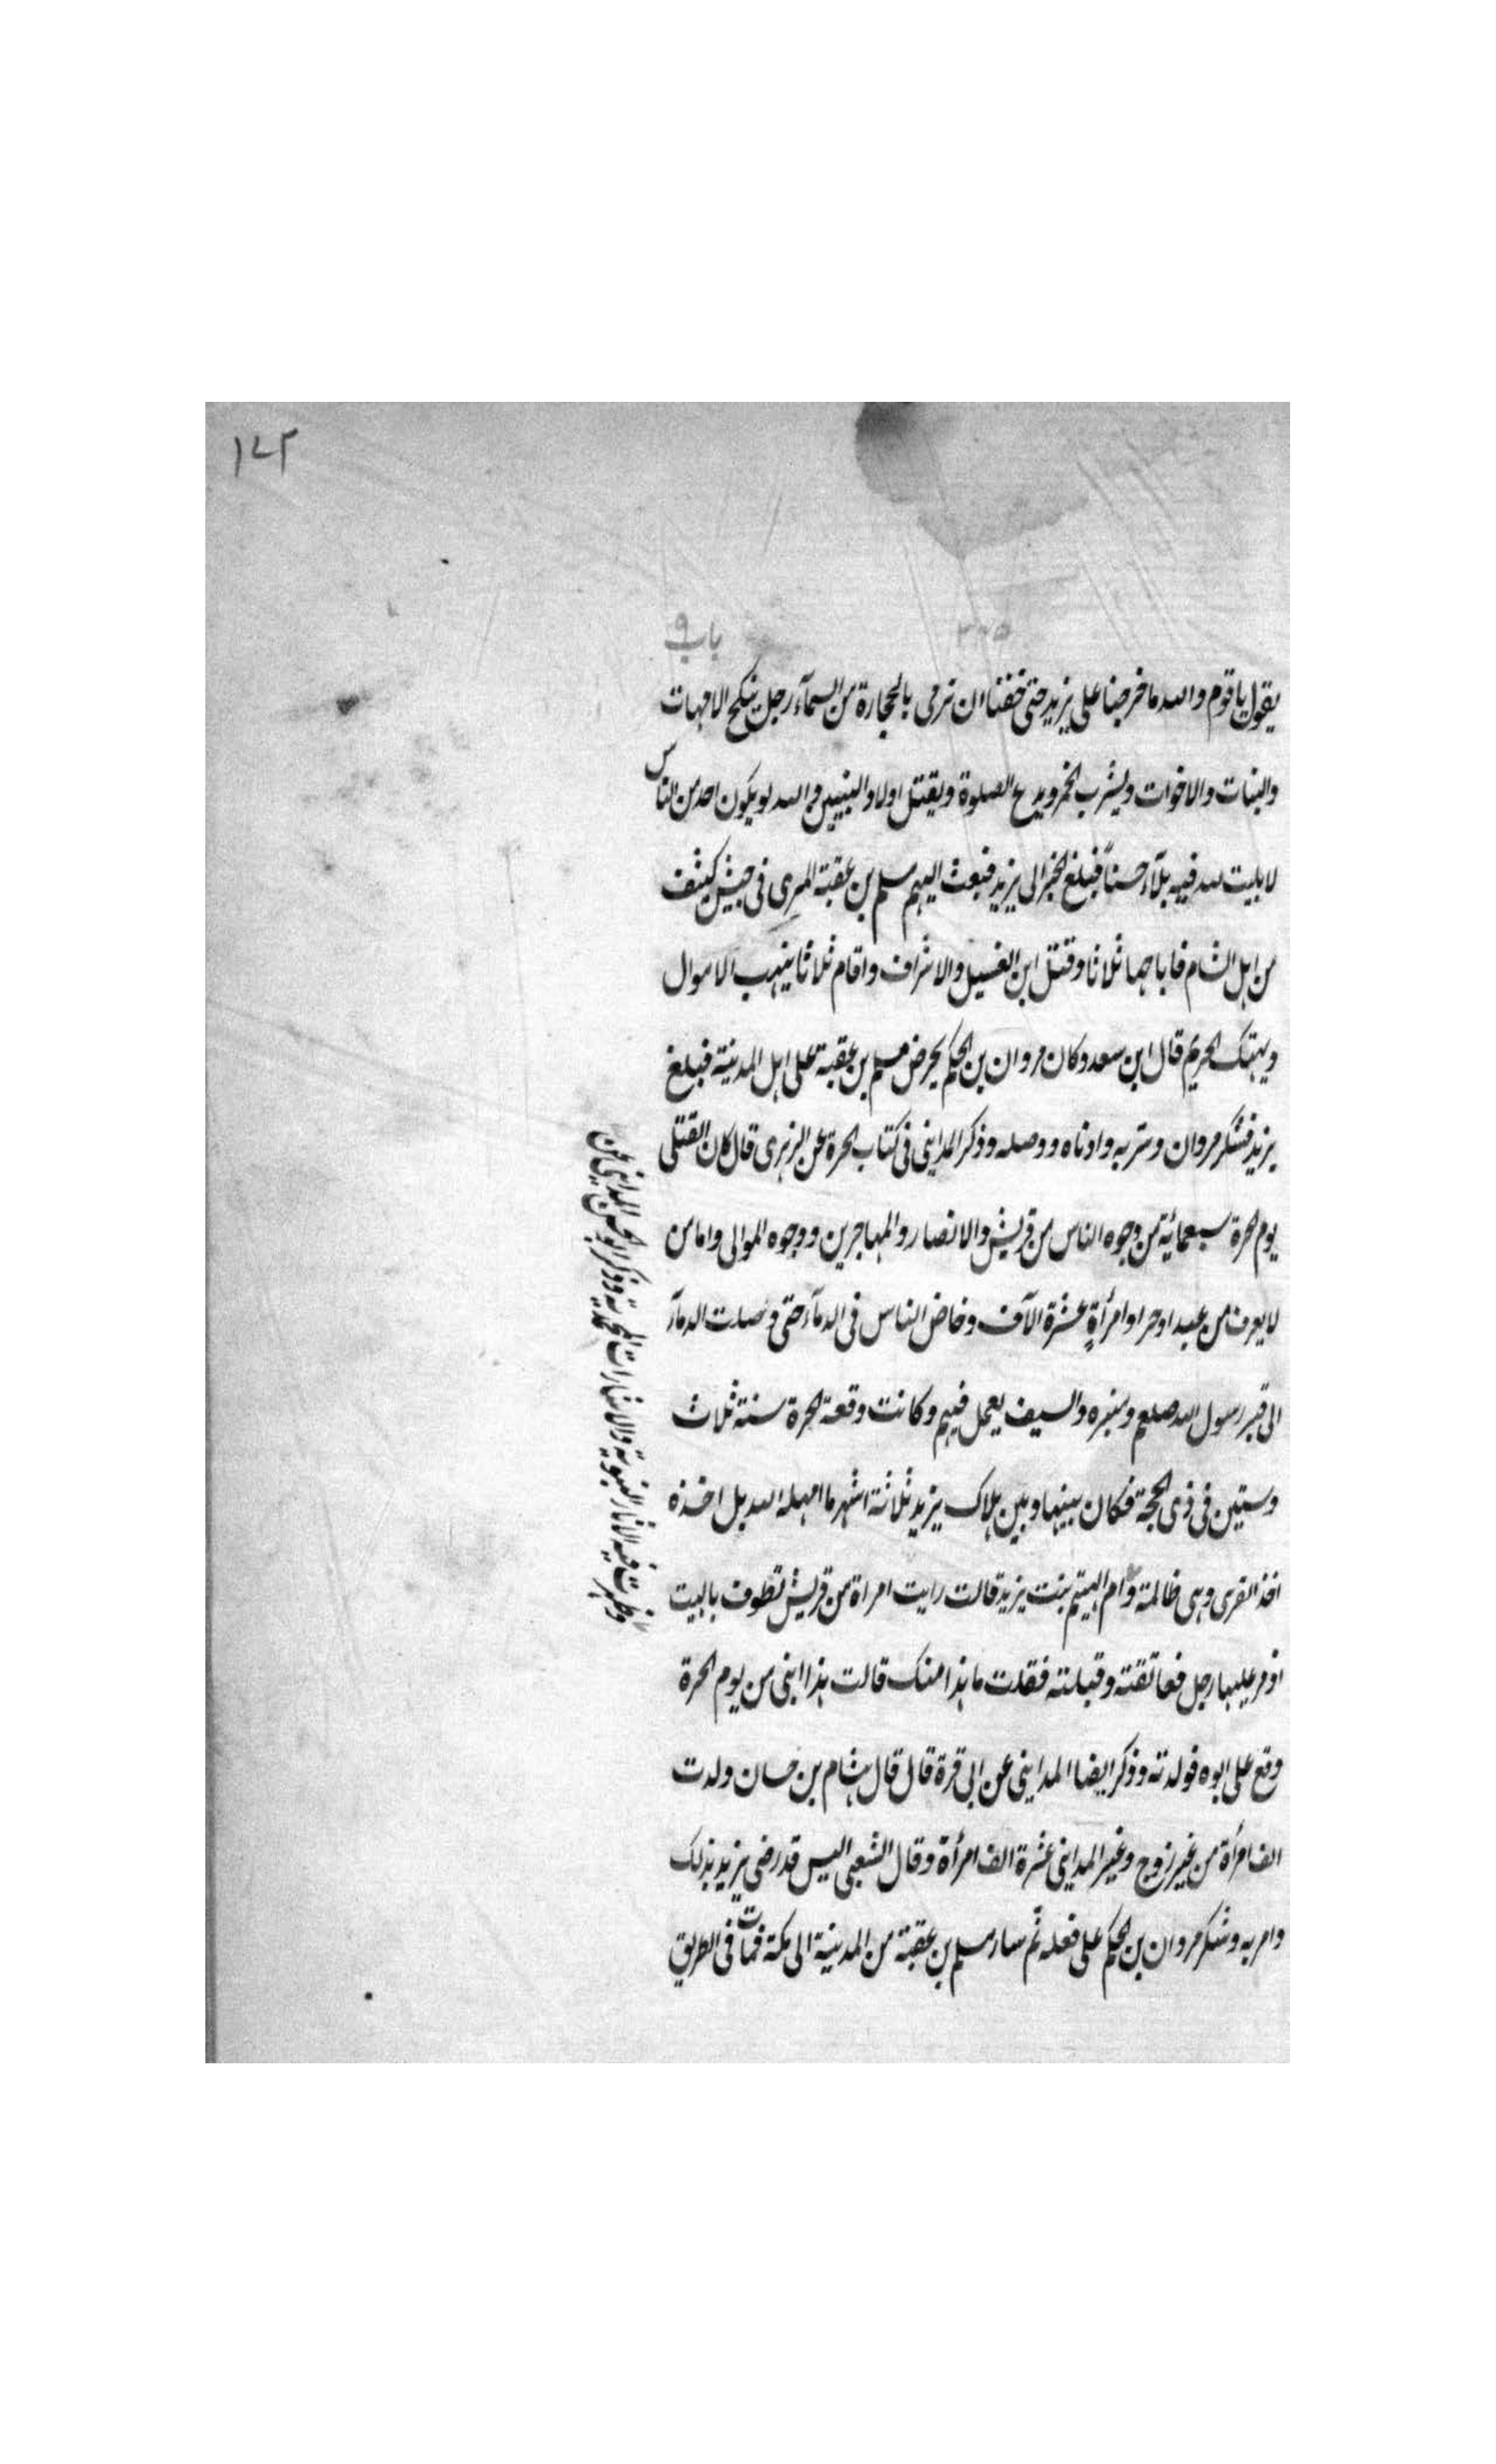 ١٤٢
باب ٩
يقول يا قوم والله ما خرجنا على يزيد حتى خفنا ان نرمى بالحجارة من السمآء رجل ينكح الامهات
والبنات والاخوات ويشرب الخمر ويدع الصلوة ويقتل اولاد النبيين والله لو يكون احد من الناس
لابليت لله فيه بلآء حسناً فبلغ الخبر الى يزيد فبعث اليهم مسلم بن عقبة المرى فى جيش كثيف
من اهل الشام فاباحها ثلاثا وقتل ابن الغسيل والاشراف واقام ثلاثا ينهب الاموال
ويهتك الحريم قال ابن سعد وكان مروان بن الحكم يحرض مسلم بن عقبة على اهل المدينة فبلغ
يزيد فشكر مروان وقربه وادناه ووصله وذكر المداينى فى كتاب الحرة عن الزهرى قال كان القتلى
يوم الحرة سبعمائة من وجوه الناس من قريش والانصار والمهاجرين ووجوه الموالى واما من
لا يعرف من عبد او حر او امرأة عشرة الآف وخاض الناس فى الدمآء حتى وصلت الدمآء
الى قبر رسول الله صلعم ومنبره والسيف يعمل فيهم وكانت وقعة الحرة سنة ثلاث
وستين فى ذى الحجة فكان بينها وبين هلاك يزيد ثلاثة اشهر ما امهله الله بل اخذه
اخذ القرى وهى ظالمة وام الهيثم بنت يزيد قالت رايت امراة من قريش تطوف بالبيت
اذ مر عليها رجل فعانقته وقبلته فقلت ما هذا منك قالت هذا ابنى من يوم الحرة
وقع على ابوه فولدته وذكر ايضا المداينى عن ابى قرة قال قال هشام بن حسان ولدت
الف امرأة من غير زوج وغير المداينى عشرة الف امرأة وقال الشعبى اليس قد رضى يزيد بذلك
وامر به وشكر مروان بن الحكم على فعله ثم سار مسلم بن عقبة من المدينة الى مكة فمات فى الطريق
وظهرت فيه الاثار النبوية والاشارات المحمدية وذكر ابو الحسن المداينى عن